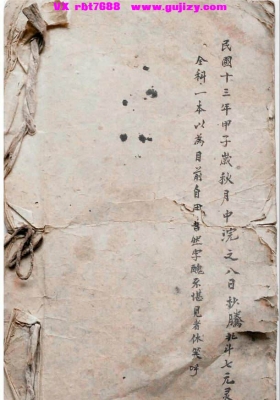 VX rht7688 www.gujizy.com
民國十三年甲子歲秋月中浣之八日抄騰北斗七元灵
全科一本以為目前自用吉然字醜不堪見者休笑吁